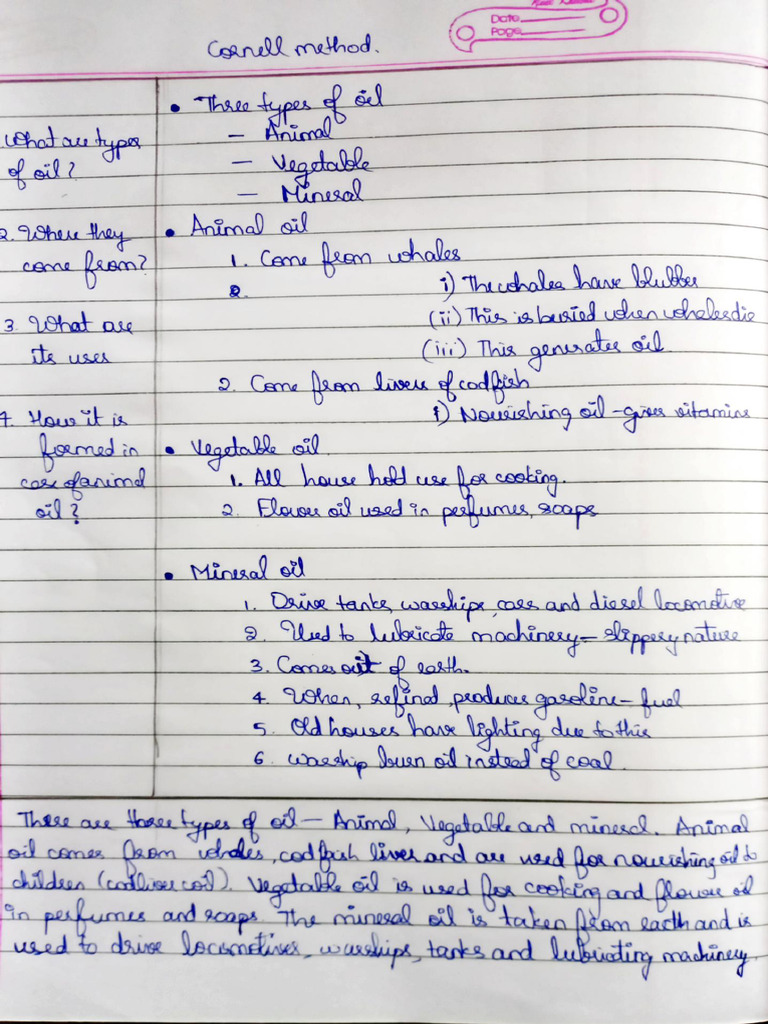 Date
Page
Cornell method.
What are types
of oil?
2. Where they
come from?
3. What are
its uses
4. How it is
formed in
case of animal
oil?
• Three types of oil
– Animal
– Vegetable
– Mineral
• Animal oil
1. Come from whales
2.
i) The whales have blubber
(ii) This is buried when whales die
(iii) This generates oil.
2. Come from livers of codfish
i) Nourishing oil - gives vitamins
• Vegetable oil.
1. All house hold use for cooking.
2. Flower oil used in perfumes, soaps
• Mineral oil
1. Drive tanks, warships, cars and diesel locomotive
2. Used to lubricate machinery - slippery nature
3. Comes out of earth.
4. When, refined, produces gasoline - fuel
5. Old houses have lighting due to this
6. Warship burn oil instead of coal.
There are three types of oil - Animal, Vegetable and mineral. Animal
oil comes from whales, codfish liver and are used for nourishing oil to
children (codliver oil). Vegetable oil is used for cooking and flower oil
in perfumes and soaps. The mineral oil is taken from earth and is
used to drive locomotives, warships, tanks and lubricating machinery.